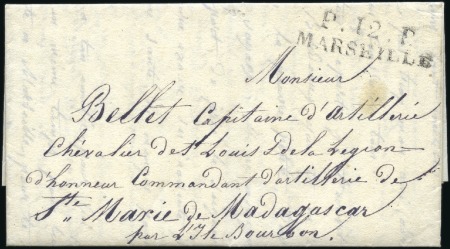 P.12.P.
MARSEILLE.
Monsieur
Bellet Capitaine d'Artillerie
Chevalier de St Louis & de la Legion
d'honneur Commandant d'artillerie de
Ste Marie de Madagascar
par L'Ile Bourbon.